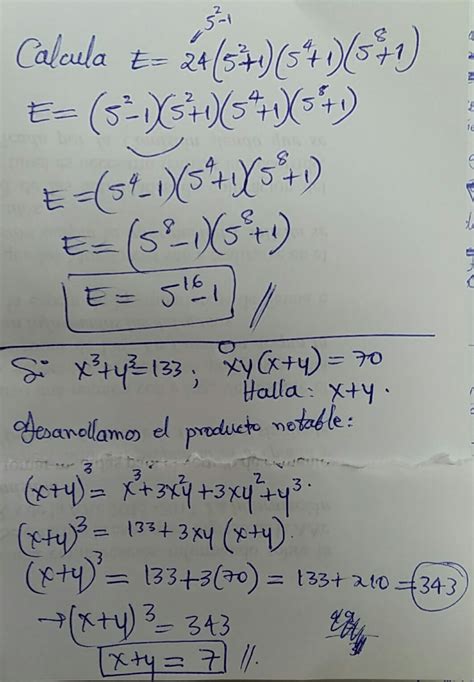 5²-1
Calcula E = 24(5²+1)(5⁴+1)(5⁸+1)
E = (5²-1)(5²+1)(5⁴+1)(5⁸+1)
E = (5⁴-1)(5⁴+1)(5⁸+1)
E = (5⁸-1)(5⁸+1)
E = 5¹⁶-1 //
Si x³+y³=133; xy(x+y) = 70
Halla: x+y.
Desarrollamos el producto notable:
(x+y)³ = x³+3x²y+3xy²+y³.
(x+y)³ = 133+3xy(x+y).
(x+y)³ = 133+3(70) = 133+210 = 343
→(x+y)³ = 343
x+y = 7 //.